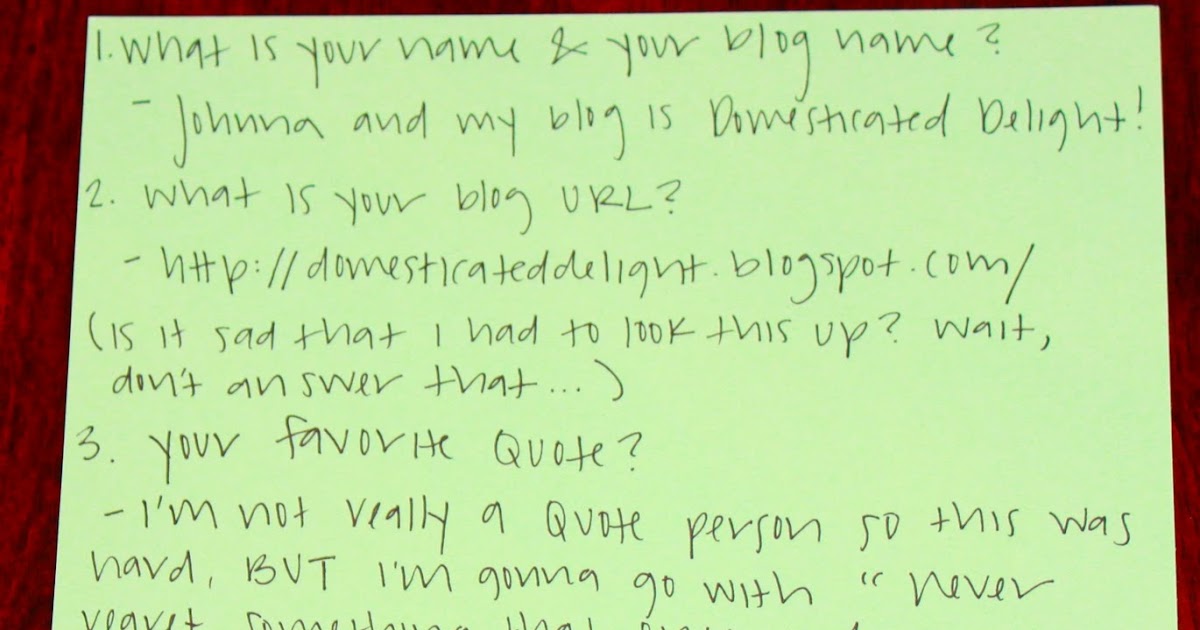 1. What is your name & your blog name?
- Johnna and my blog is Domesticated Delight!
2. What is your blog URL?
- http://domesticateddelight.blogspot.com/
(Is it sad that I had to look this up? Wait,
don't answer that...)
3. Your favorite Quote?
- I'm not really a Quote person so this was
hard, BUT I'm gonna go with "never
regret something that